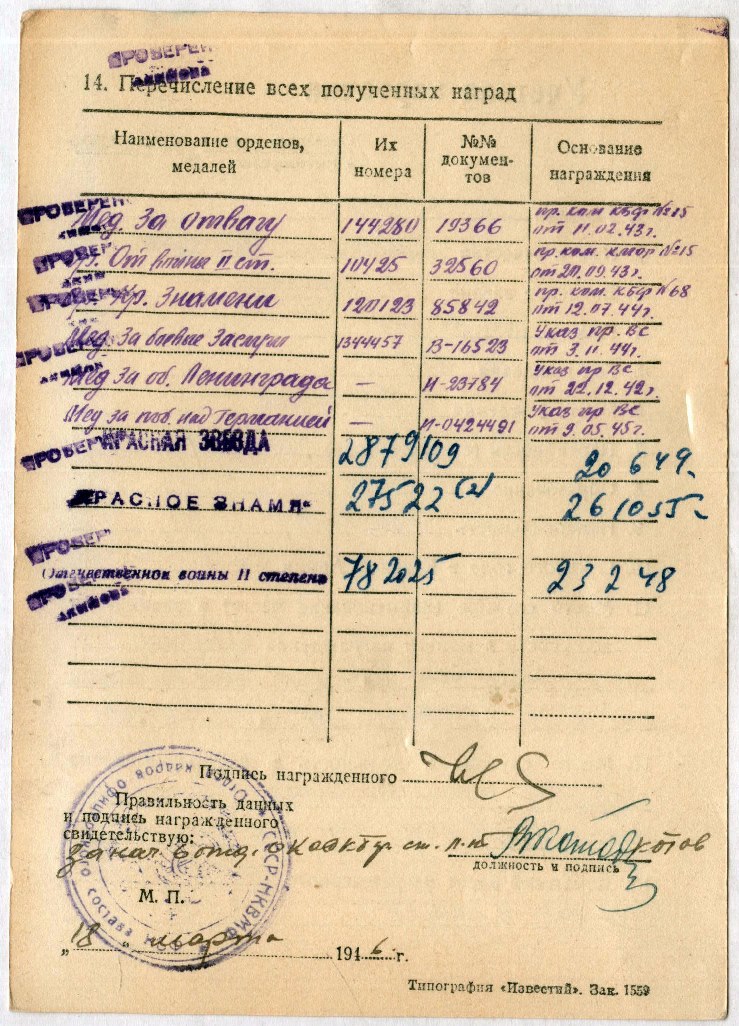 ПРОВЕРЕН
АКИМОВА
14. Перечисление всех полученных наград
Наименование орденов, медалей
Их номера
№№ документов
Основание награждения
ПРОВЕРЕНО
Мед. За отвагу 144280 19366 пр. ком КБФ №15 от 11.02.43г.
ПРОВЕР
От. войны II ст. 10425 32560 пр. ком. КМОР №15 от 20.09.43г.
ПРОВЕР
Кр. Знамени 120123 85842 пр. ком. КБФ №68 от 12.07.44г.
Мед. За боевые Заслуги 1344457 В-16523 Указ пр. ВС от 3.11.44г.
ПРОВЕР
Мед За об. Ленинграда — И-23784 Указ пр ВС от 22.12.42г.
Мед за поб. над Германией — И-0424491 Указ пр ВС от 9.05.45г.
ПРОВЕР КРАСНАЯ ЗВЕЗДА 2879109 20 6 49
КРАСНОЕ ЗНАМЯ 27522 (2) 26 10 55
ПРОВЕР
Отечественной войны II степень 782025 23 2 48
ПРОВЕР
АКИМОВА
Подпись награжденного
Правильность данных
и подпись награжденного
свидетельствую:
За нач. отд. ст. л-нт Котов
должность и подпись
М. П.
„18" марта 1946 г.
Типография «Известий». Зак. 1559